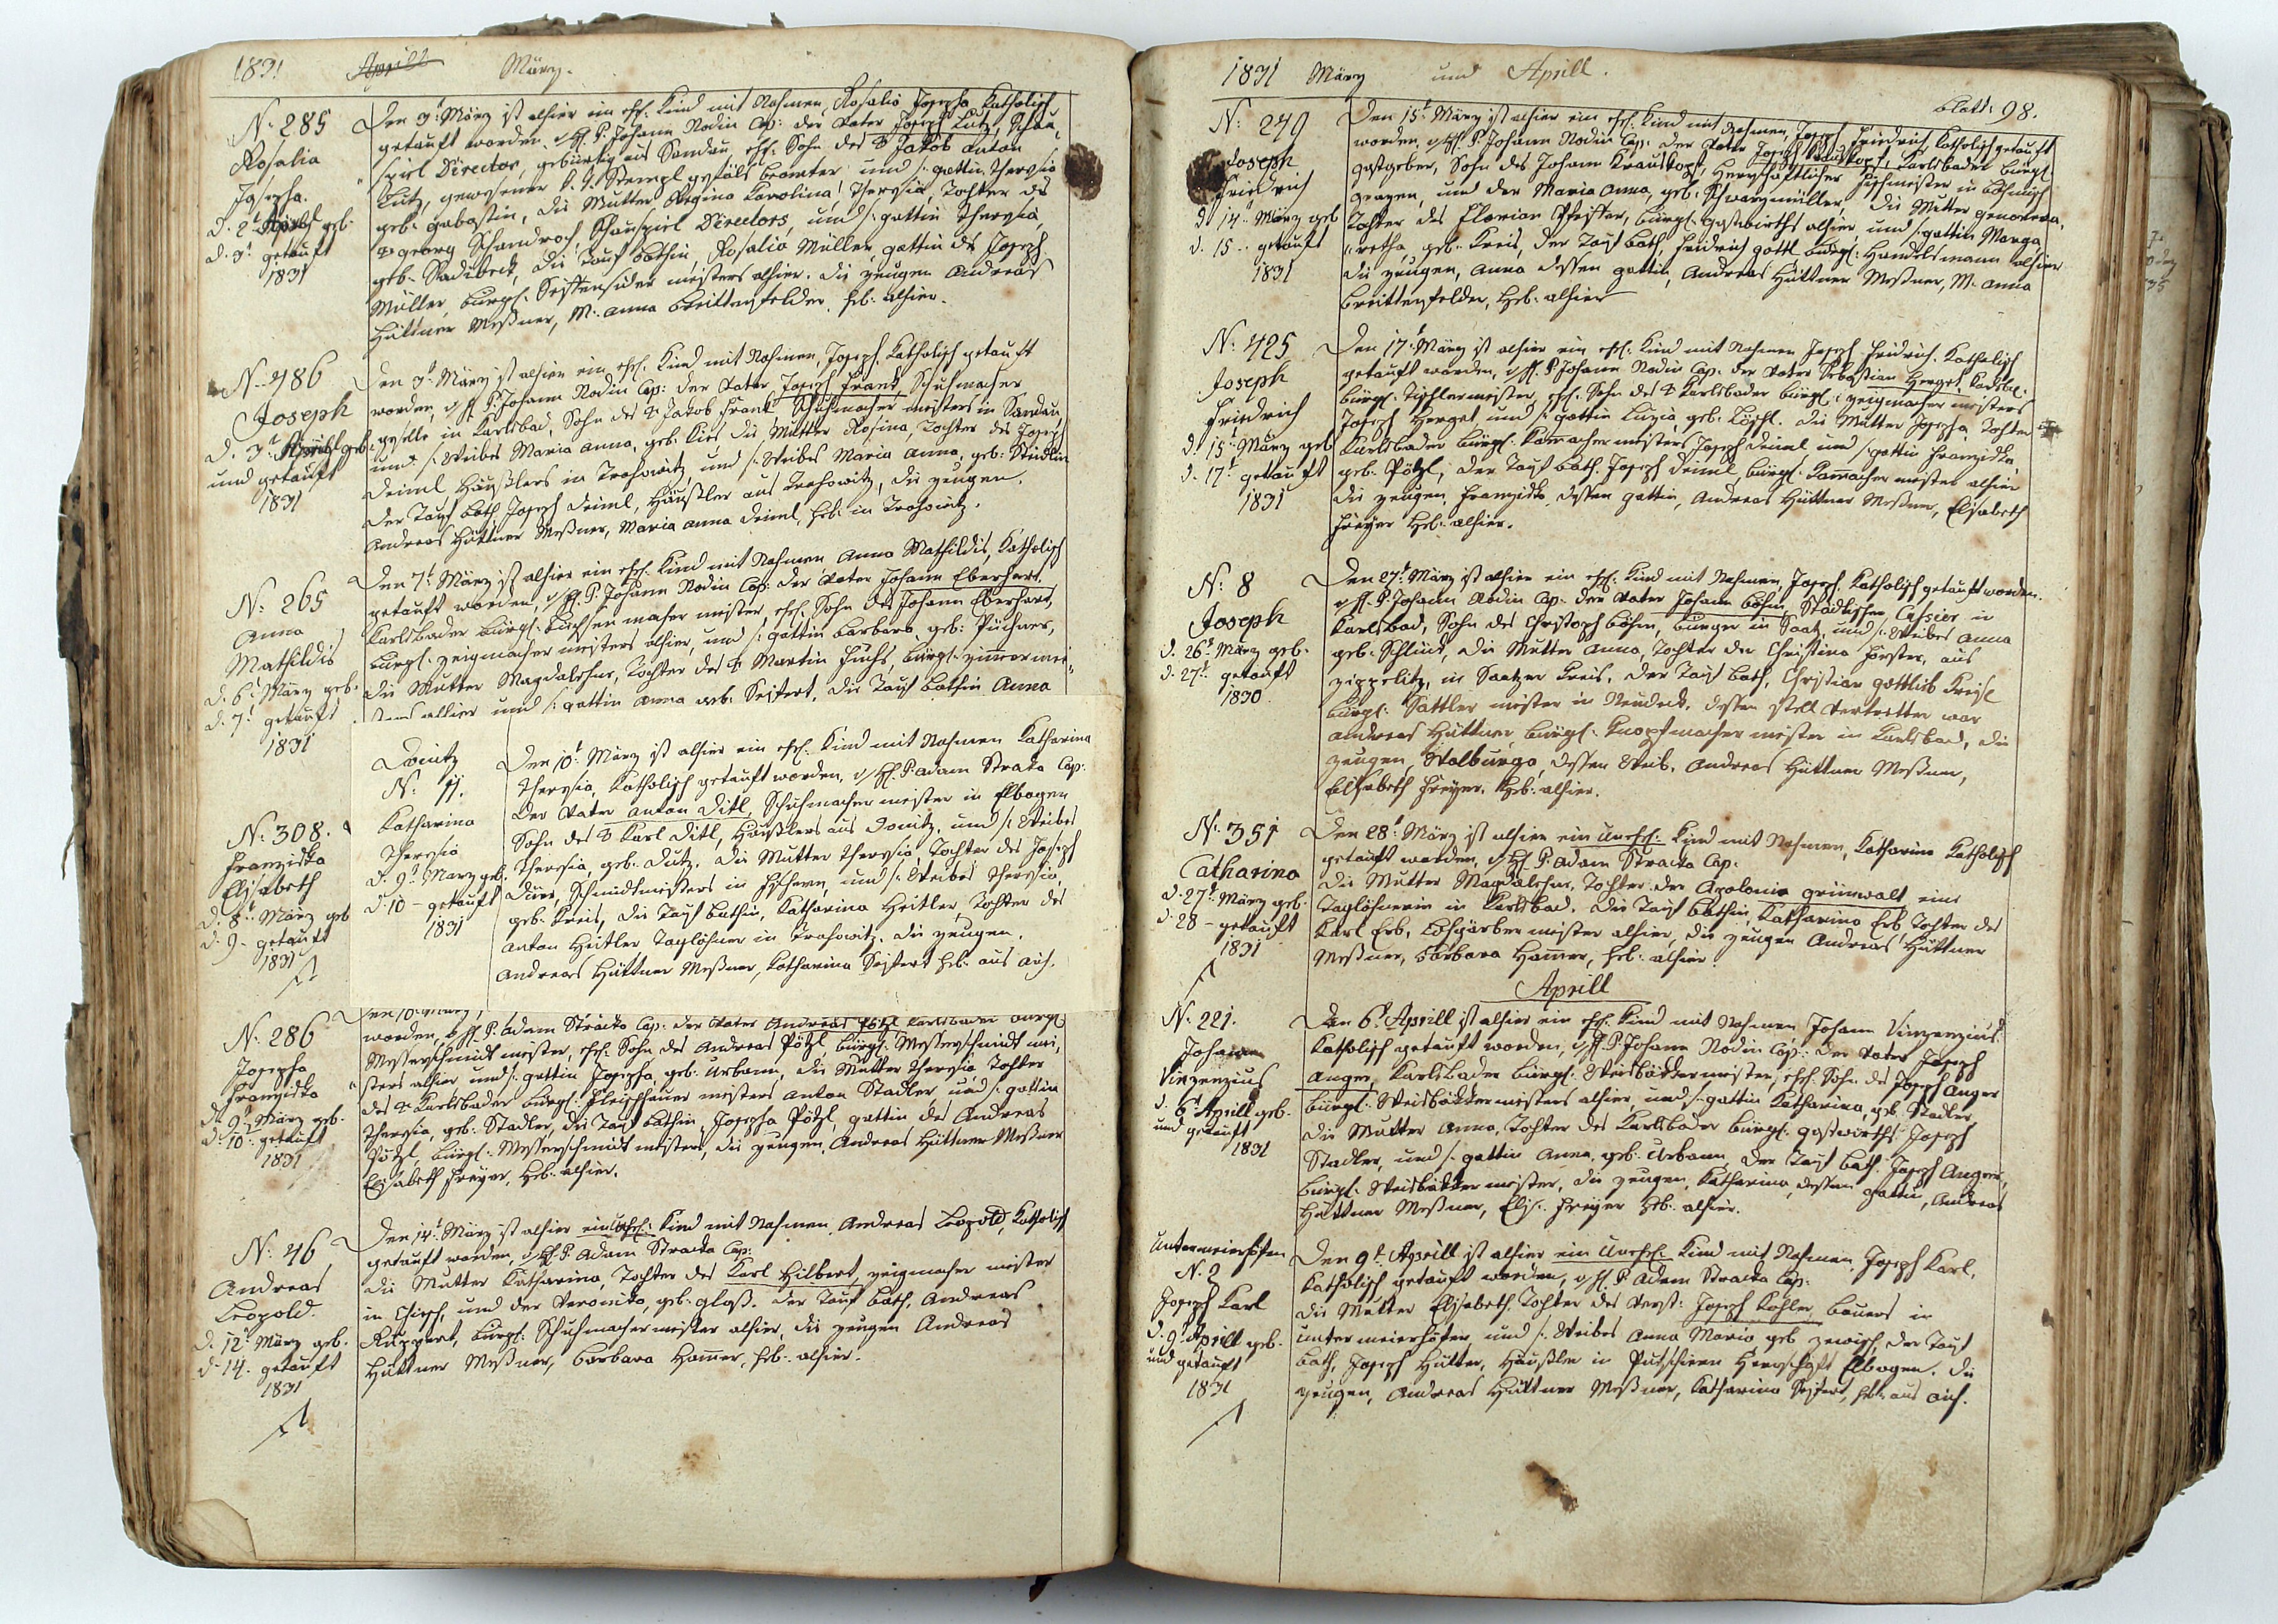 1831 Aprill März.
N. 285
Rosalia
Josepha.
d. 2t Aprill geb.
d. 3t getauft
1831
Den 3t März ist alhier ein ehl. Kind mit Nahmen, Rosalia Josepha, Katholisch
getauft worden, P. Johann Rodin Cap: der Vater Joseph Lutz, Schau-
spiel Director, gebürtig aus Sandau, ehl. Sohn des Jakob Anton
Lutz, gewesener Stempl gefäls beamter und s. gattin Theresia
geb. die Mutter Regina Karolina, Theresia, Tochter des
Georg Schandroch, Schauspiel Directors, und s. gattin Theresia,
geb. die Tauf Bothin, Rosalia Müller, gattin des Joseph
Müller, bürgl. Seifensider meisters alhier. die zeugen Andreas
Hüttner Meßner, M. Anna Breittenfelder, heb. alhier.
N. 486
Joseph
d. 3t Aprill geb.
und getauft
1831
Den 3t März ist alhier ein ehl. Kind mit Nahmen, Joseph, Katholisch getauft
worden, P. Johann Rodin Cap: der Vater Joseph Frank Schuhmacher
geselle in Karlsbad, Sohn des Jakob Frank Schuhmacher meisters in Sandau
und s. Weibes Maria Anna, geb. Kies die Mutter Rosina, Tochter des Joseph
Deiml Häußlers in Trahowitz, und s. Weibes Maria Anna, geb. Steidlin
der Tauf Both, Joseph Deiml, Häußler aus Trahowitz, die zeugen,
Andreas Hüttner Meßner, Maria Anna Deiml, heb. in Trahowitz.
N: 265
Anna
Mathildis
d. 6t März geb.
d. 7t getauft
1831
Den 7t März ist alhier ein ehl. Kind mit Nahmen Anna Mathildis, Katholisch
getauft worden, P. Johann Rodin Cap: der Vater Johann Eberhart,
Karlsbader bürgl. büchsen macher meister, ehl. Sohn des Johann Eberhart,
bürgl. zeigmacher meisters alhier, und s. gattin Barbara, geb. Püchner,
die Mutter Magdalehna, Tochter des Martin Fuchs, bürgl. zimer mei-
sters alhier und s. gattin Anna geb. Seifert. die Tauf Bothin Anna
Donitz
N: 11.
Katharina
Theresia
d. 9t März geb.
d. 10 - getauft
1831
Den 10t März ist alhier ein ehl. Kind mit Nahmen Katharina
Theresia, Katholisch getauft worden, P. Adam Straka Cap:
der Vater Anton Ditl, Schuhmacher meister in Elbogen
Sohn des Karl Ditl, Häußlers aus Donitz, und s. Weibes
Theresia, geb. Dutz. die Mutter Theresia, Tochter des Joseph
Schmidtmeisters in Fischern, und s. Weibes Theresia,
geb. Kreis, die Tauf Bothin, Katharina Heitler, Tochter des
Anton Heitler Taglöhner in Trahowitz. die zeugen,
Andreas Hüttner Meßner, Katharina Seifert heb. aus Aich.
N: 308.
Franziska
Elisabeth
d. 8t März geb
d. 9 - getauft
1831
N: 286
Josepha
Franziska
d. 9t März geb.
d. 10 - getauft
1831
Den 10t März
worden, P. Adam Stracka Cap: der Vater Andreas Pötzl Karlsbader bürgl
Messerschmidt meister, ehl. Sohn des Andreas Pötzl bürgl. Messerschmidt mei-
sters alhier und s. gattin Josepha, geb. Urbann, die Mutter Theresia, Tochter
des Karlsbader bürgl. Fleischhauer meisters Anton Stadler und s. gattin
Theresia, geb. Stadler, die Tauf Bothin, Josepha Pötzl, gattin des Andreas
Pötzl bürgl. Messerschmidt meisters, die zeugen, Andreas Hüttner Meßner
Elisabeth Freyer, heb. alhier.
N: 46
Andreas
Leopold.
d. 12t März geb.
d. 14. getauft
1831
Den 14t März ist alhier ein Unehl. Kind mit Nahmen, Andreas Leopold, Katholisch
getauft worden, P. Adam Stracka Cap:
die Mutter Katharina, Tochter des Karl Hilbert, zeigmacher meister
in und der Veronika, geb. Gloß. der Tauf Both, Andreas
Ruppert, bürgl. Schuhmacher meister alhier, die zeugen Andreas
Hüttner Meßner, Barbara Hamer, heb. alhier.
1831 März und Aprill.
blatt: 98.
N: 249
Joseph
Friedrich
d 14t März geb
d. 15 .. getauft
1831
Den 15t März ist alhier ein ehl. Kind mit Nahmen, Joseph Friedrich Katholisch getauft
worden, P. Johann Rodin Cap: der Vater Joseph Krauskopf, Karlsbader bürgl
gastgeber, Sohn des Johann Krauskopf, Herrschaftlicher Fischmeister in böhmisch
und der Maria Anna, geb. Schwarzmüller, die Mutter Genovena,
Tochter des Florian Pfeister, bürgl. gastwirths alhier und s. gattin Marga
retha geb. Kreis, der Tauf Both, Friedrich Gottl bürgl: Handelsmann alhier
die zeugen, Anna dessen gattin, Andreas Hüttner Meßner, M. Anna
Breittenfelder, heb. alhier
N: 425
Joseph
Friedrich
d. 15t März geb
d. 17t getauft
1831
Den 17t März ist alhier ein ehl. Kind mit Nahmen Joseph Friedrich, Katholisch
getauft worden, P. Johann Rodin Cap: der Vater Sebastian Herget, Karlsb.
bürgl. Tischlermeister, ehl. Sohn des Karlsbader bürgl. zeigmacher meisters
Joseph Herget und s. gattin Luzia, geb. Löschl. die Mutter Josepha, Tochter
Karlsbader bürgl. Kamacher meisters Joseph Deiml und s. gattin Franziska
geb. Pötzl, der Tauf Both. Joseph Deiml, bürgl. Kamacher meister alhier
die zeugen, Franziska, dessen gattin, Andreas Hüttner Meßner, Elisabeth
Freyer heb. alhier.
N: 8
Joseph
d. 26t März geb.
d. 27t getauft
1830
Den 27t März ist alhier ein ehl. Kind mit Nahmen, Joseph, Katholisch getauft worden.
P. Johann Rodin Cap: der Vater Johann Böhm, Städtischer Cassier in
Karlsbad, Sohn des Christoph Böhm, burger in Saatz, und s. Weibes Anna
geb. Schlink, die Mutter Anna, Tochter der Christina Förster, aus
in Saatzer Kreis, der Tauf Both, Christian Gottlieb Kreisl
bürgl. Sattler meister in Neudeck, dessen stell vertretter war
Andreas Hüttner, bürgl. Knopfmacher meister in Karlsbad, die
zeugen, Walburga, dessen Weib, Andreas Hüttner Meßner,
Elisabeth Freyer, heb. alhier.
N: 351
Catharina
d. 27t März geb.
d. 28 - getauft
1831
Den 28t März ist alhier ein Unehl: Kind mit Nahmen, Katharina Katholisch
getauft worden, P. Adam Stracka Cap:
die Mutter Magdalehna, Tochter der Apolonia Grünwalt, eine
Taglöhnerin in Karlsbad. die Tauf Bothin, Katharina Erb, Tochter des
Karl Erb, Lohgärber meister alhier, die zeugen Andreas Hüttner
Meßner, Barbara Hamer, heb. alhier.
Aprill
N: 221.
Johann
Vinzenzius
d. 6t Aprill geb.
und getauft
1831
Den 6t Aprill ist alhier ein ehl. Kind mit Nahmen, Johann Vinzenzius
Katholisch getauft worden, P. Johann Rodin Cap: der Vater Joseph
Anger, Karlsbader bürgl. Weisbäckermeister, ehl. Sohn des Joseph Anger
bürgl. Weisbäckermeisters alhier, und s. gattin Katharina, geb. Stadler
die Mutter Anna, Tochter des Karlsbader bürgl. gastwirths Joseph
Stadler, und s. gattin Anna, geb. Urbann, der Tauf Both. Joseph Anger,
bürgl. Weisbäcker meister, die zeugen, Katharina, dessen gattin, Andreas
Hüttner Meßner, Elis. Freyer heb. alhier.
Untermeierhöfen
N. 2
Joseph Karl
d. 9t Aprill geb.
und getauft
1831
Den 9t Aprill ist alhier ein Unehl. Kind mit Nahmen, Joseph Karl,
Katholisch getauft worden, P. Adam Stracka Cap:
die Mutter Elisabeth, Tochter des Verst: Joseph Kohler, bauers in
untermeierhöfen, und s. Weibes Anna Maria geb der Tauf
Both, Joseph Hütter, Häußler in Putschirn Herrschaft Elbogen. die
zeugen, Andreas Hüttner Meßner, Katharina Seifert, heb. aus Aich.